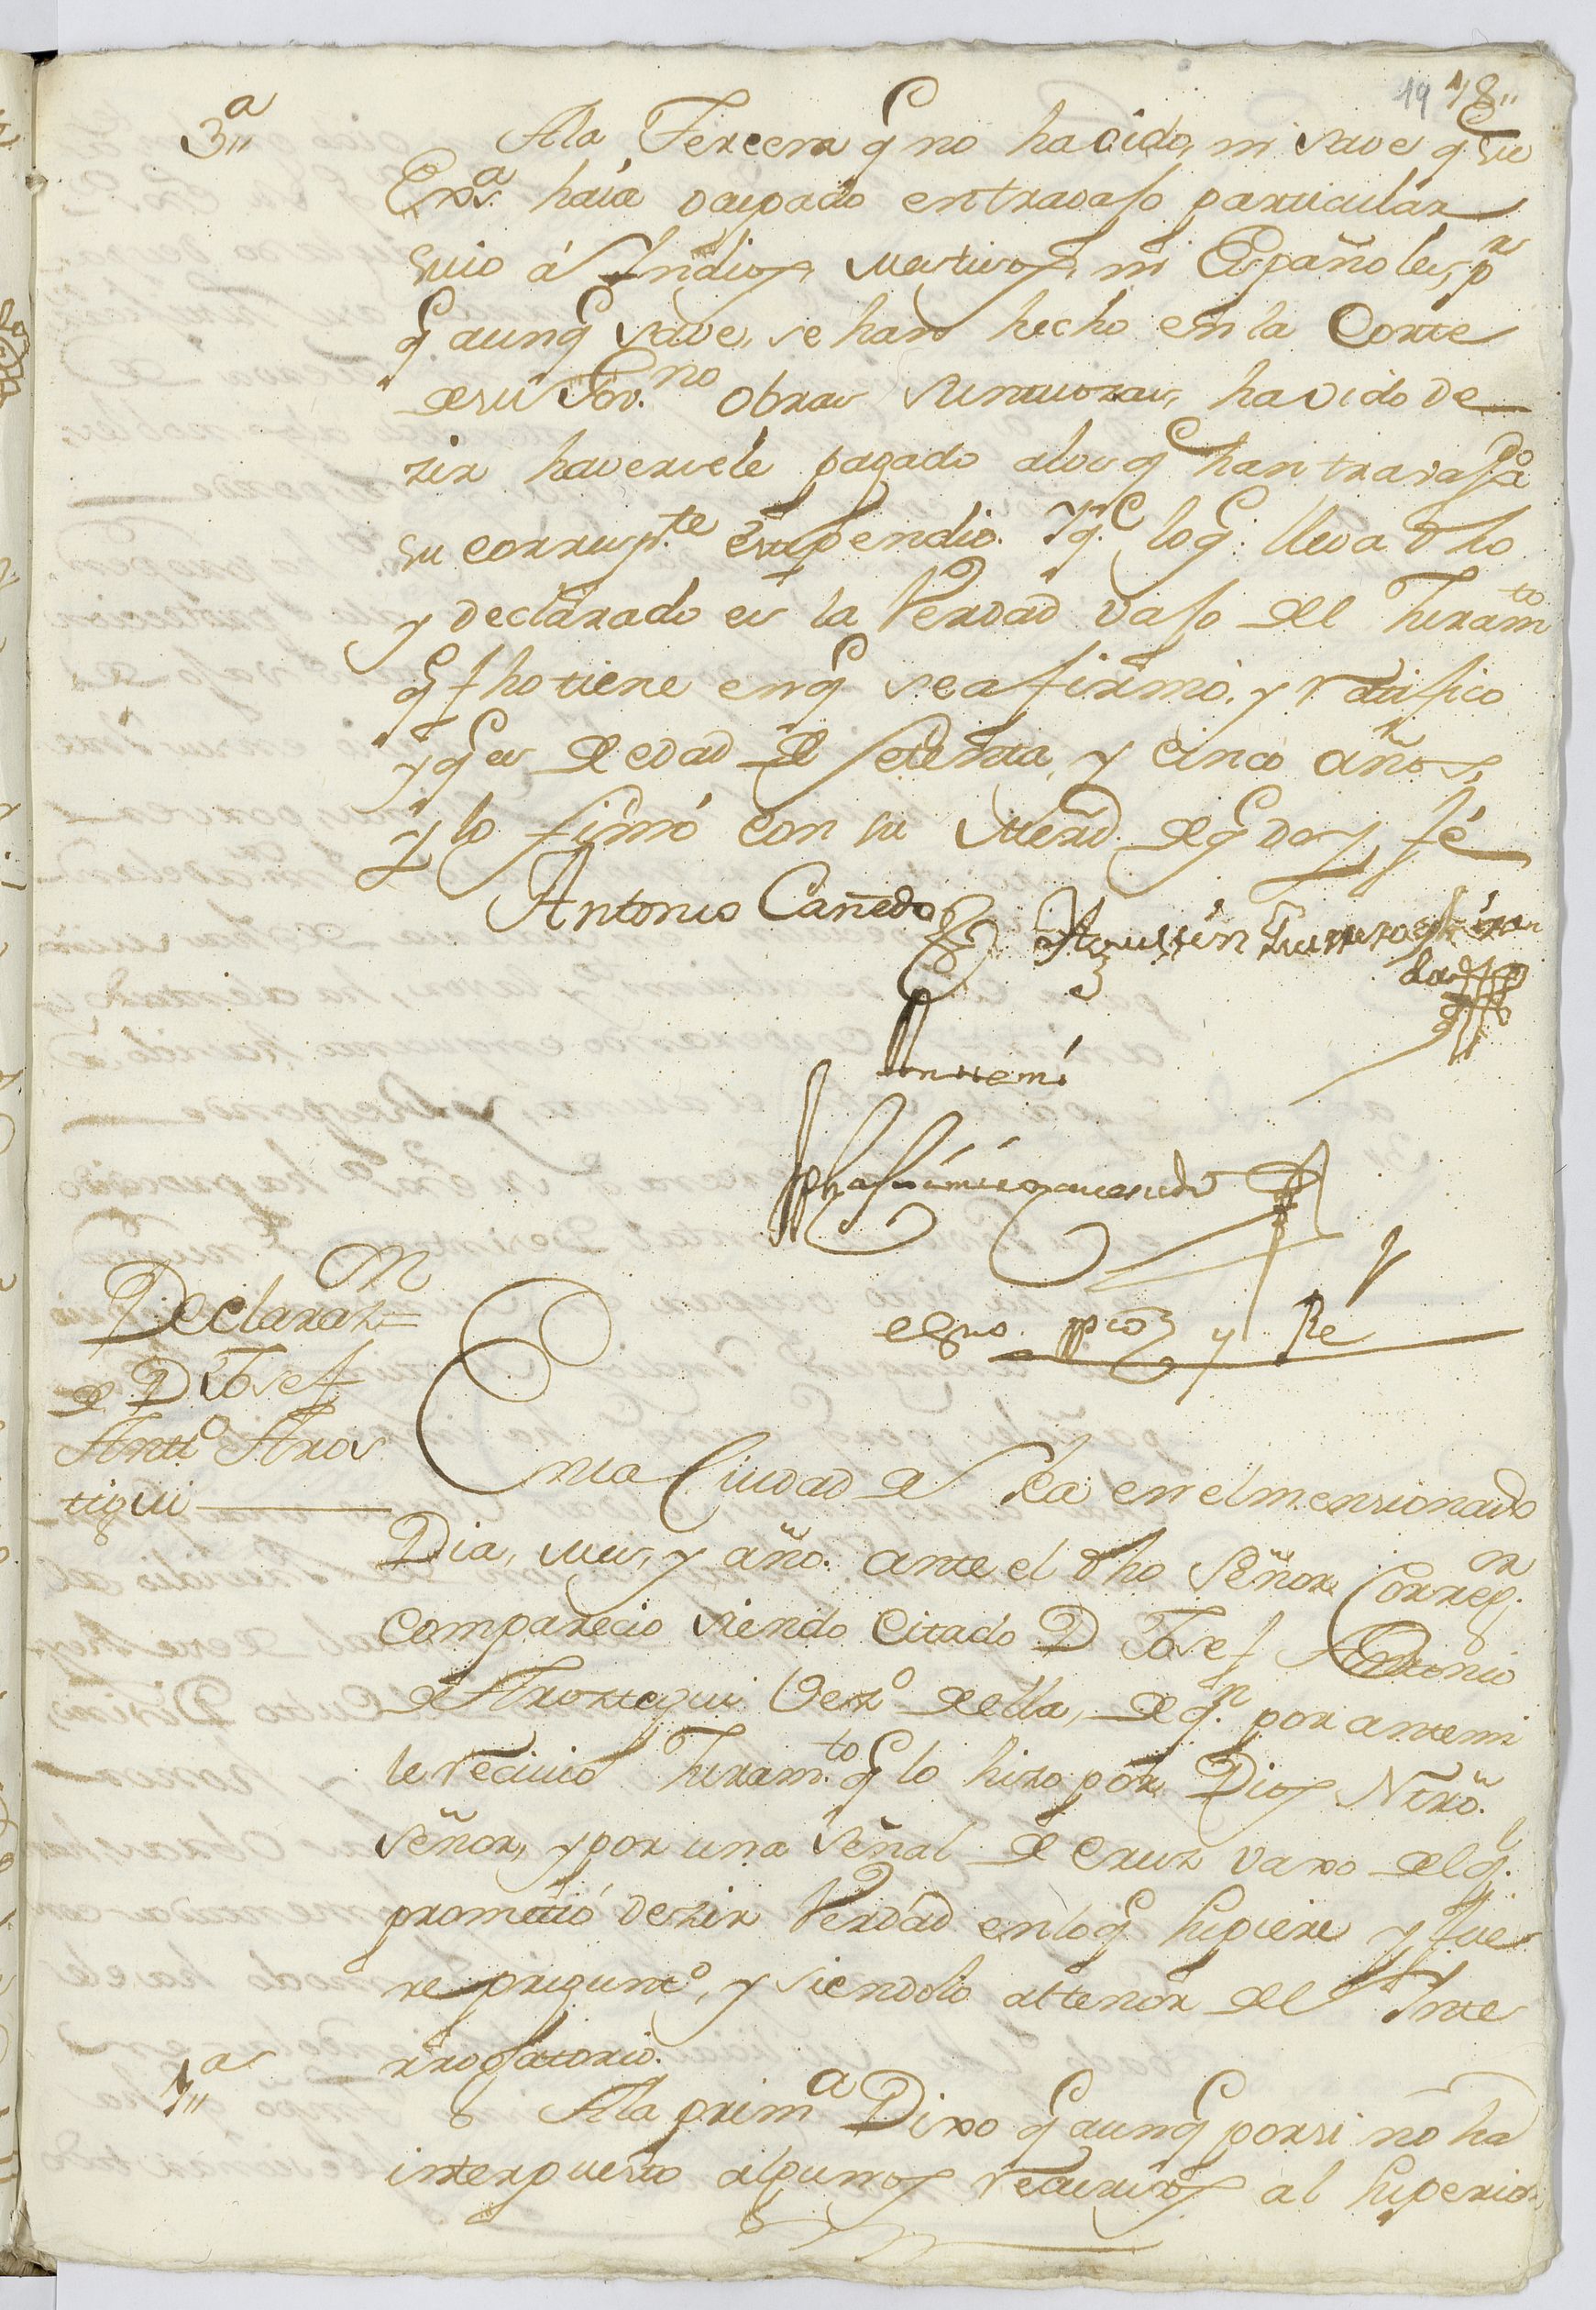 19 18,,
3,,a
Ala Tercera q no ha oido, ni save q su
Exa. haia ocupado en travajo particular
suio á Indios, Mestisos, ni Españoles, pr
q aunq save, se han hecho en la Corte
de su Gov.no obras sumtuosas, ha oido de
zir haversele pagado alos q han travajado
su corresp.te estipendio. Yq.e loq. lleva dho
y declarado es la Verdad vajo del Juramto
q fho tiene enq se afirmó. y ratifico
yq es de edad de setenta, y cinco años,
y lo firmó con su Merd. deq doy fé
Antonio Cañedo
Agustin
Antte mi
esno. ppco y Rl
Declarazn
de D Josef
Antto Aros
tigui
Enla Ciudad de Ica en el mensionado
Dia, mes, y año. ante el dho Señor Correg.or
comparecio siendo citado D Josef Antonio
de Aroztegui Vez.o de ella, de q.n por ante mi
le recivió Juram.to q lo hizo por Dios Ntrō.
señor, y por una señal de cruz vaxo del q.l
prometió dezir Verdad enloq supiere y fue
re pregunt.o, y siendolo al tenor del Inte
rrogatorio.
1,,a
Ala prim.a Dixo q aunq por si no ha
interpuesto algunos recursos al superior